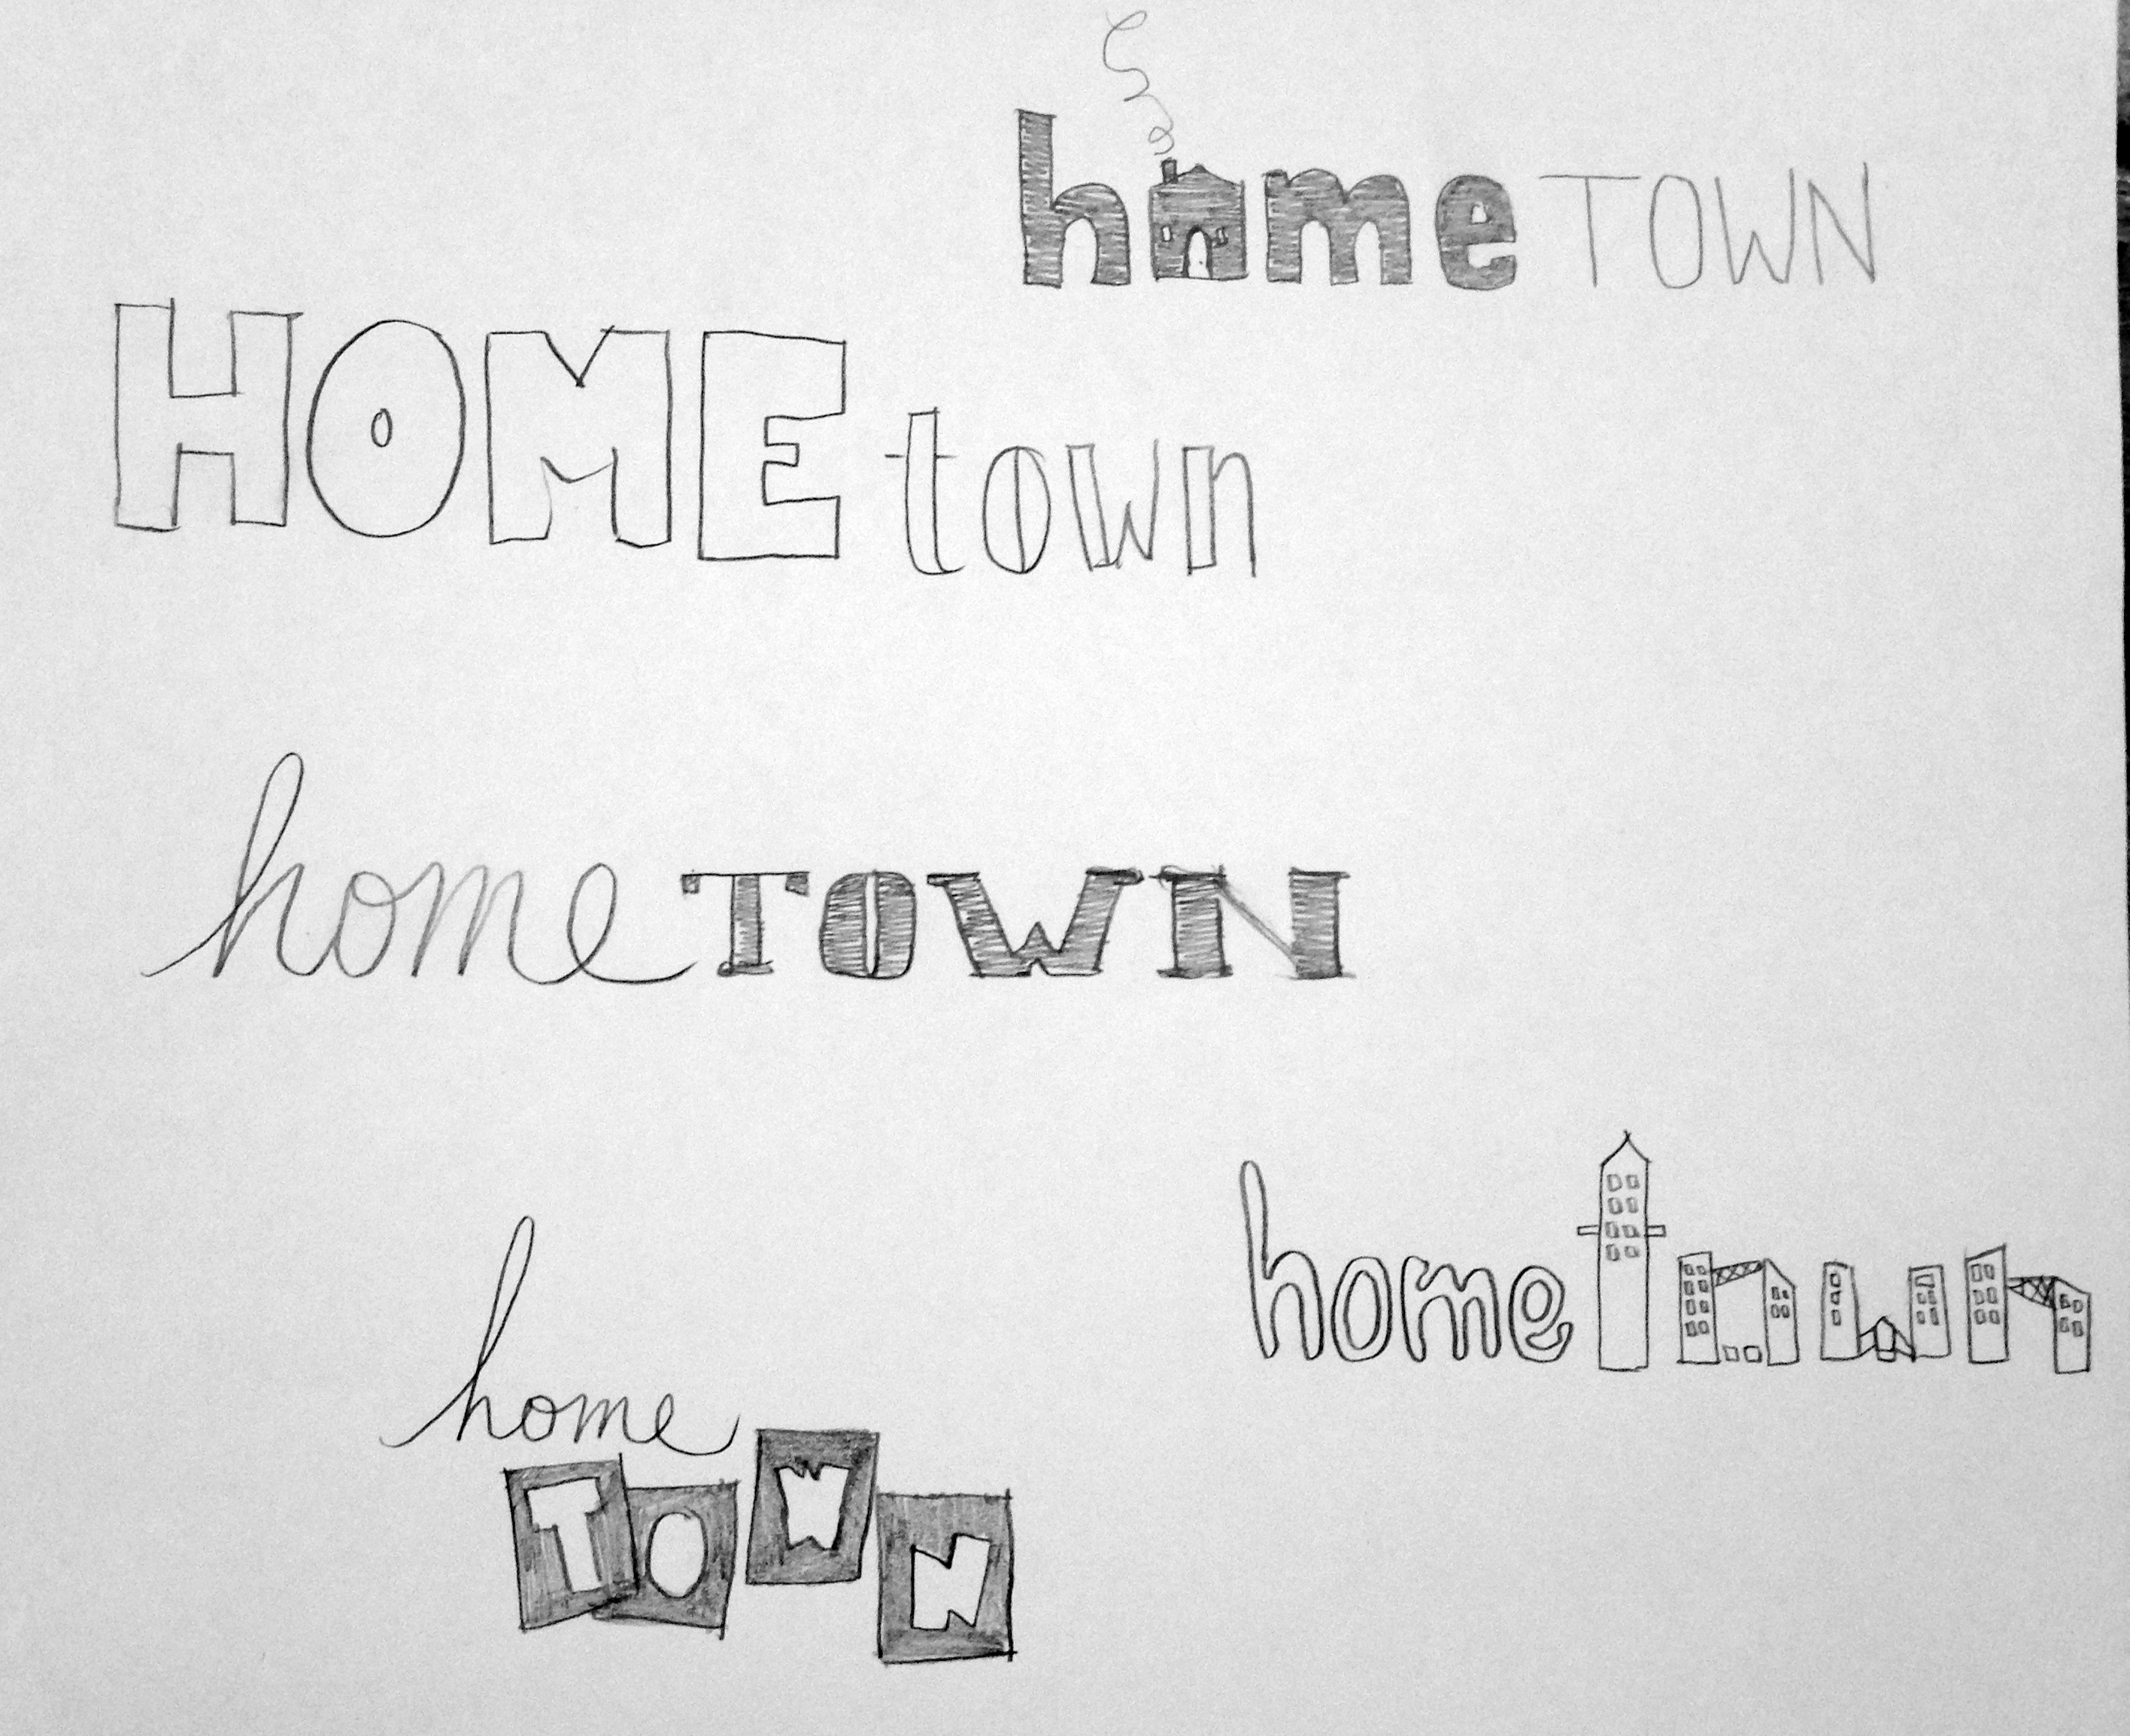 homeTOWN
HOMEtown
homeTOWN
hometown
home
TOWN